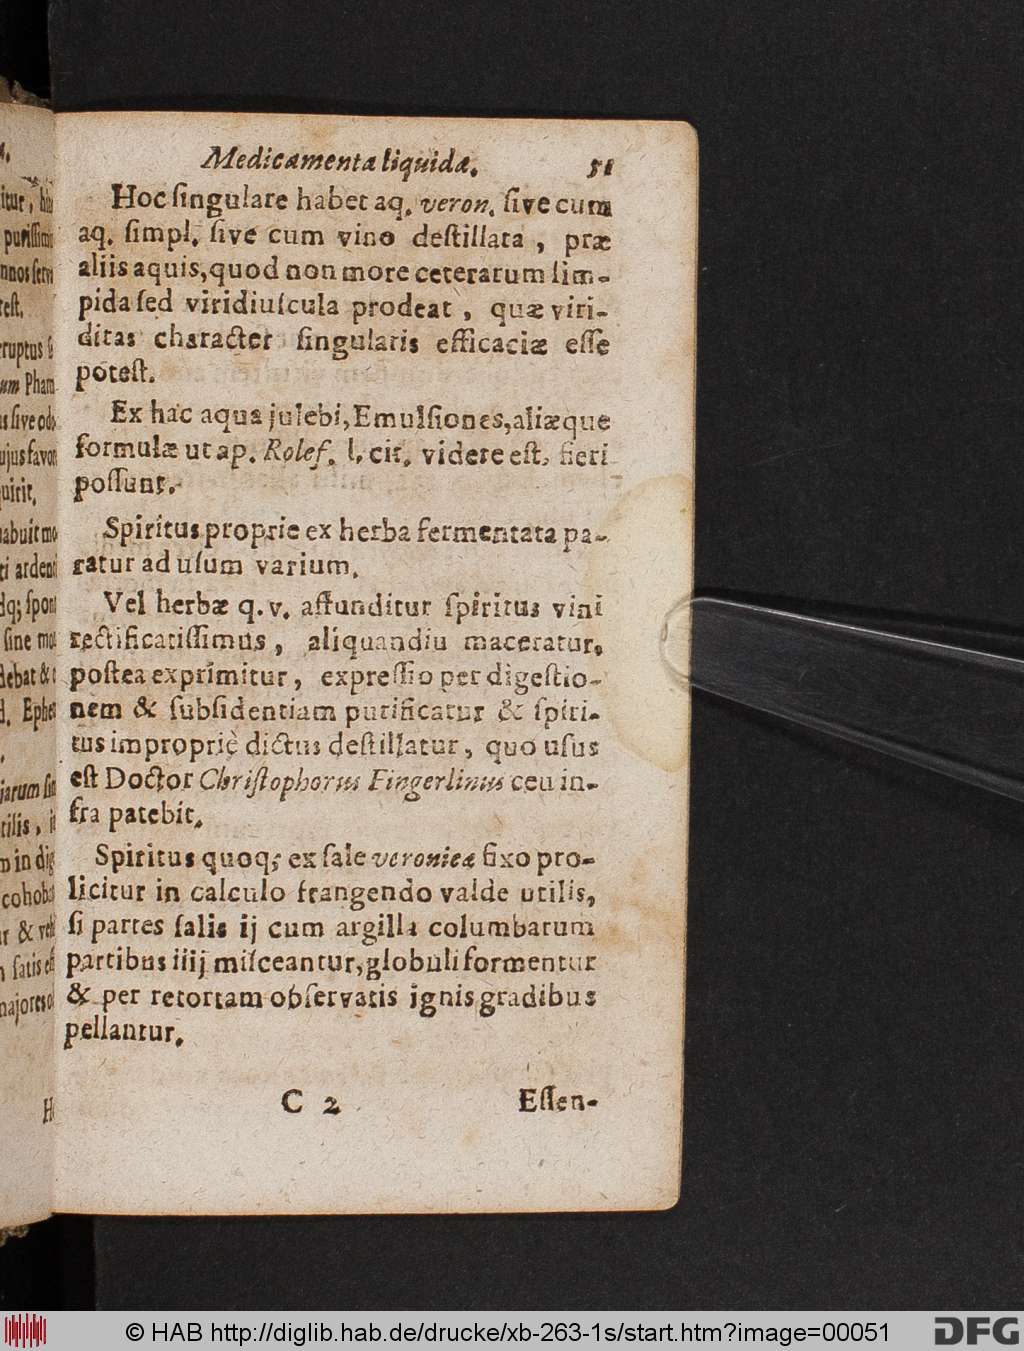 Medicamenta liquida. 51
Hoc ſingulare habet aq. veron. ſive cum
aq. ſimpl. ſive cum vino deſtillata, præ
aliis aquis, quod non more ceterarum lim-
pida ſed viridiuſcula prodeat, quæ viri-
ditas character ſingularis efficaciæ eſſe
poteſt.
Ex hac aqua julebi, Emulſiones, aliæque
formulæ ut ap. Rolef. l. cit. videre eſt, fieri
poſſunt.
Spiritus proprie ex herba fermentata pa-
ratur ad uſum varium.
Vel herbæ q. v. affunditur ſpiritus vini
rectificatiſſimus, aliquandiu maceratur,
poſtea exprimitur, expreſſio per digeſtio-
nem & ſubſidentiam purificatur & ſpiri-
tus impropriè dictus deſtillatur, quo uſus
eſt Doctor Chriſtophorus Fingerlinus ceu in-
fra patebit.
Spiritus quoq; ex ſale veronicæ fixo pro-
licitur in calculo frangendo valde utilis,
ſi partes ſalis ij cum argilla columbarum
partibus iiij miſceantur, globuli formentur
& per retortam obſervatis ignis gradibus
pellantur.
C 2 Eſſen-
© HAB http://diglib.hab.de/drucke/xb-263-1s/start.htm?image=00051
DFG